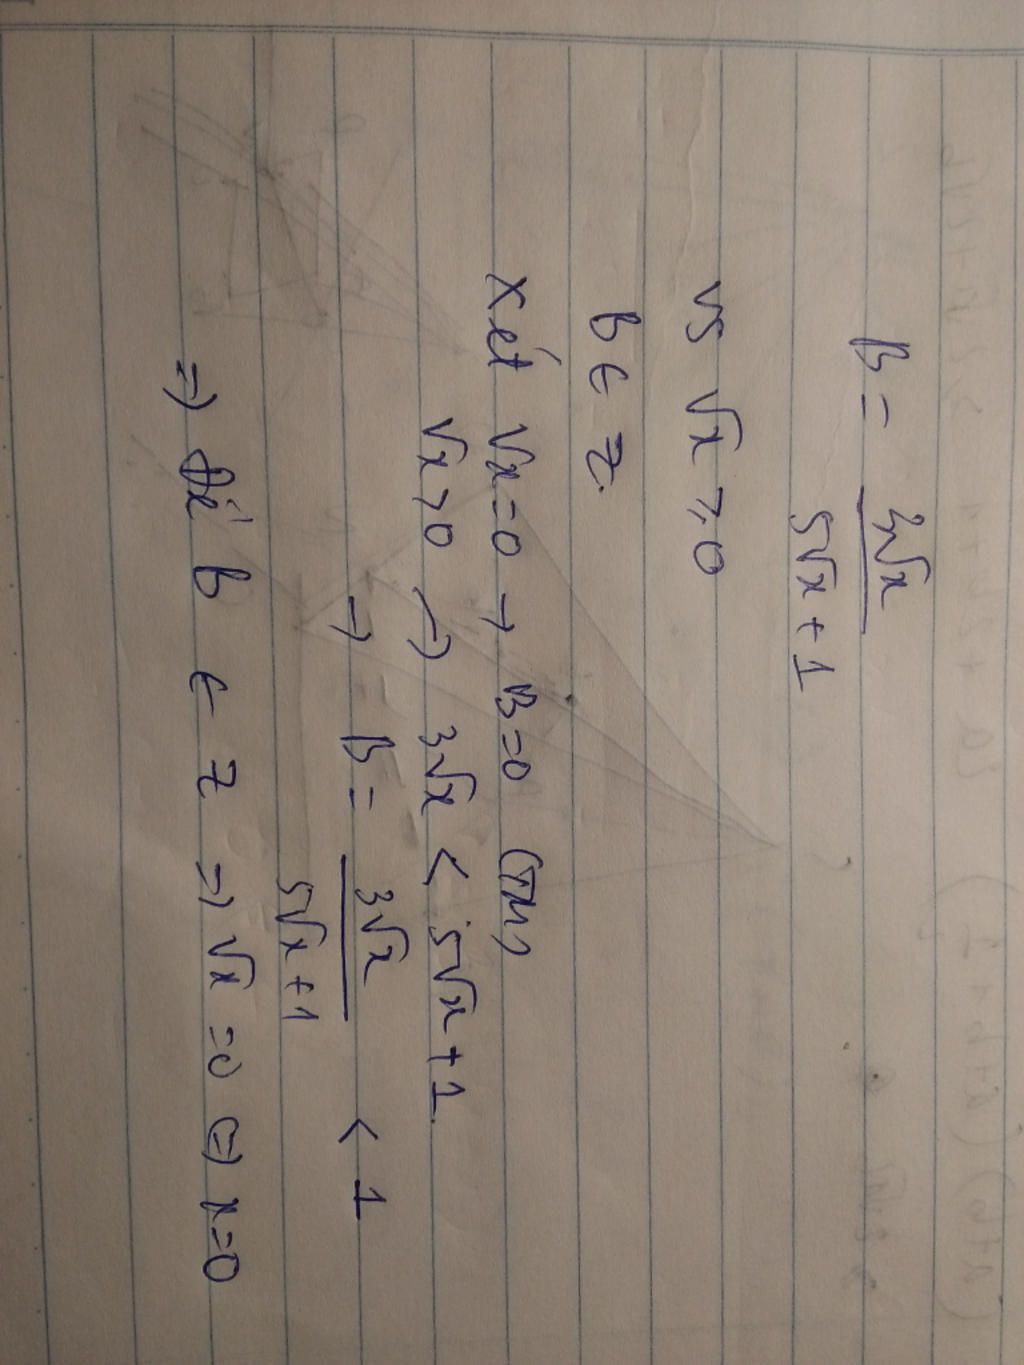 B = 3√x / 5√x + 1
vs √x ≥ 0
B ∈ Z.
Xét √x = 0 → B = 0 (TM)
√x > 0 → 3√x < 5√x + 1
→ B = 3√x / 5√x + 1 < 1
=> Để B ∈ Z => √x = 0 <=> x = 0